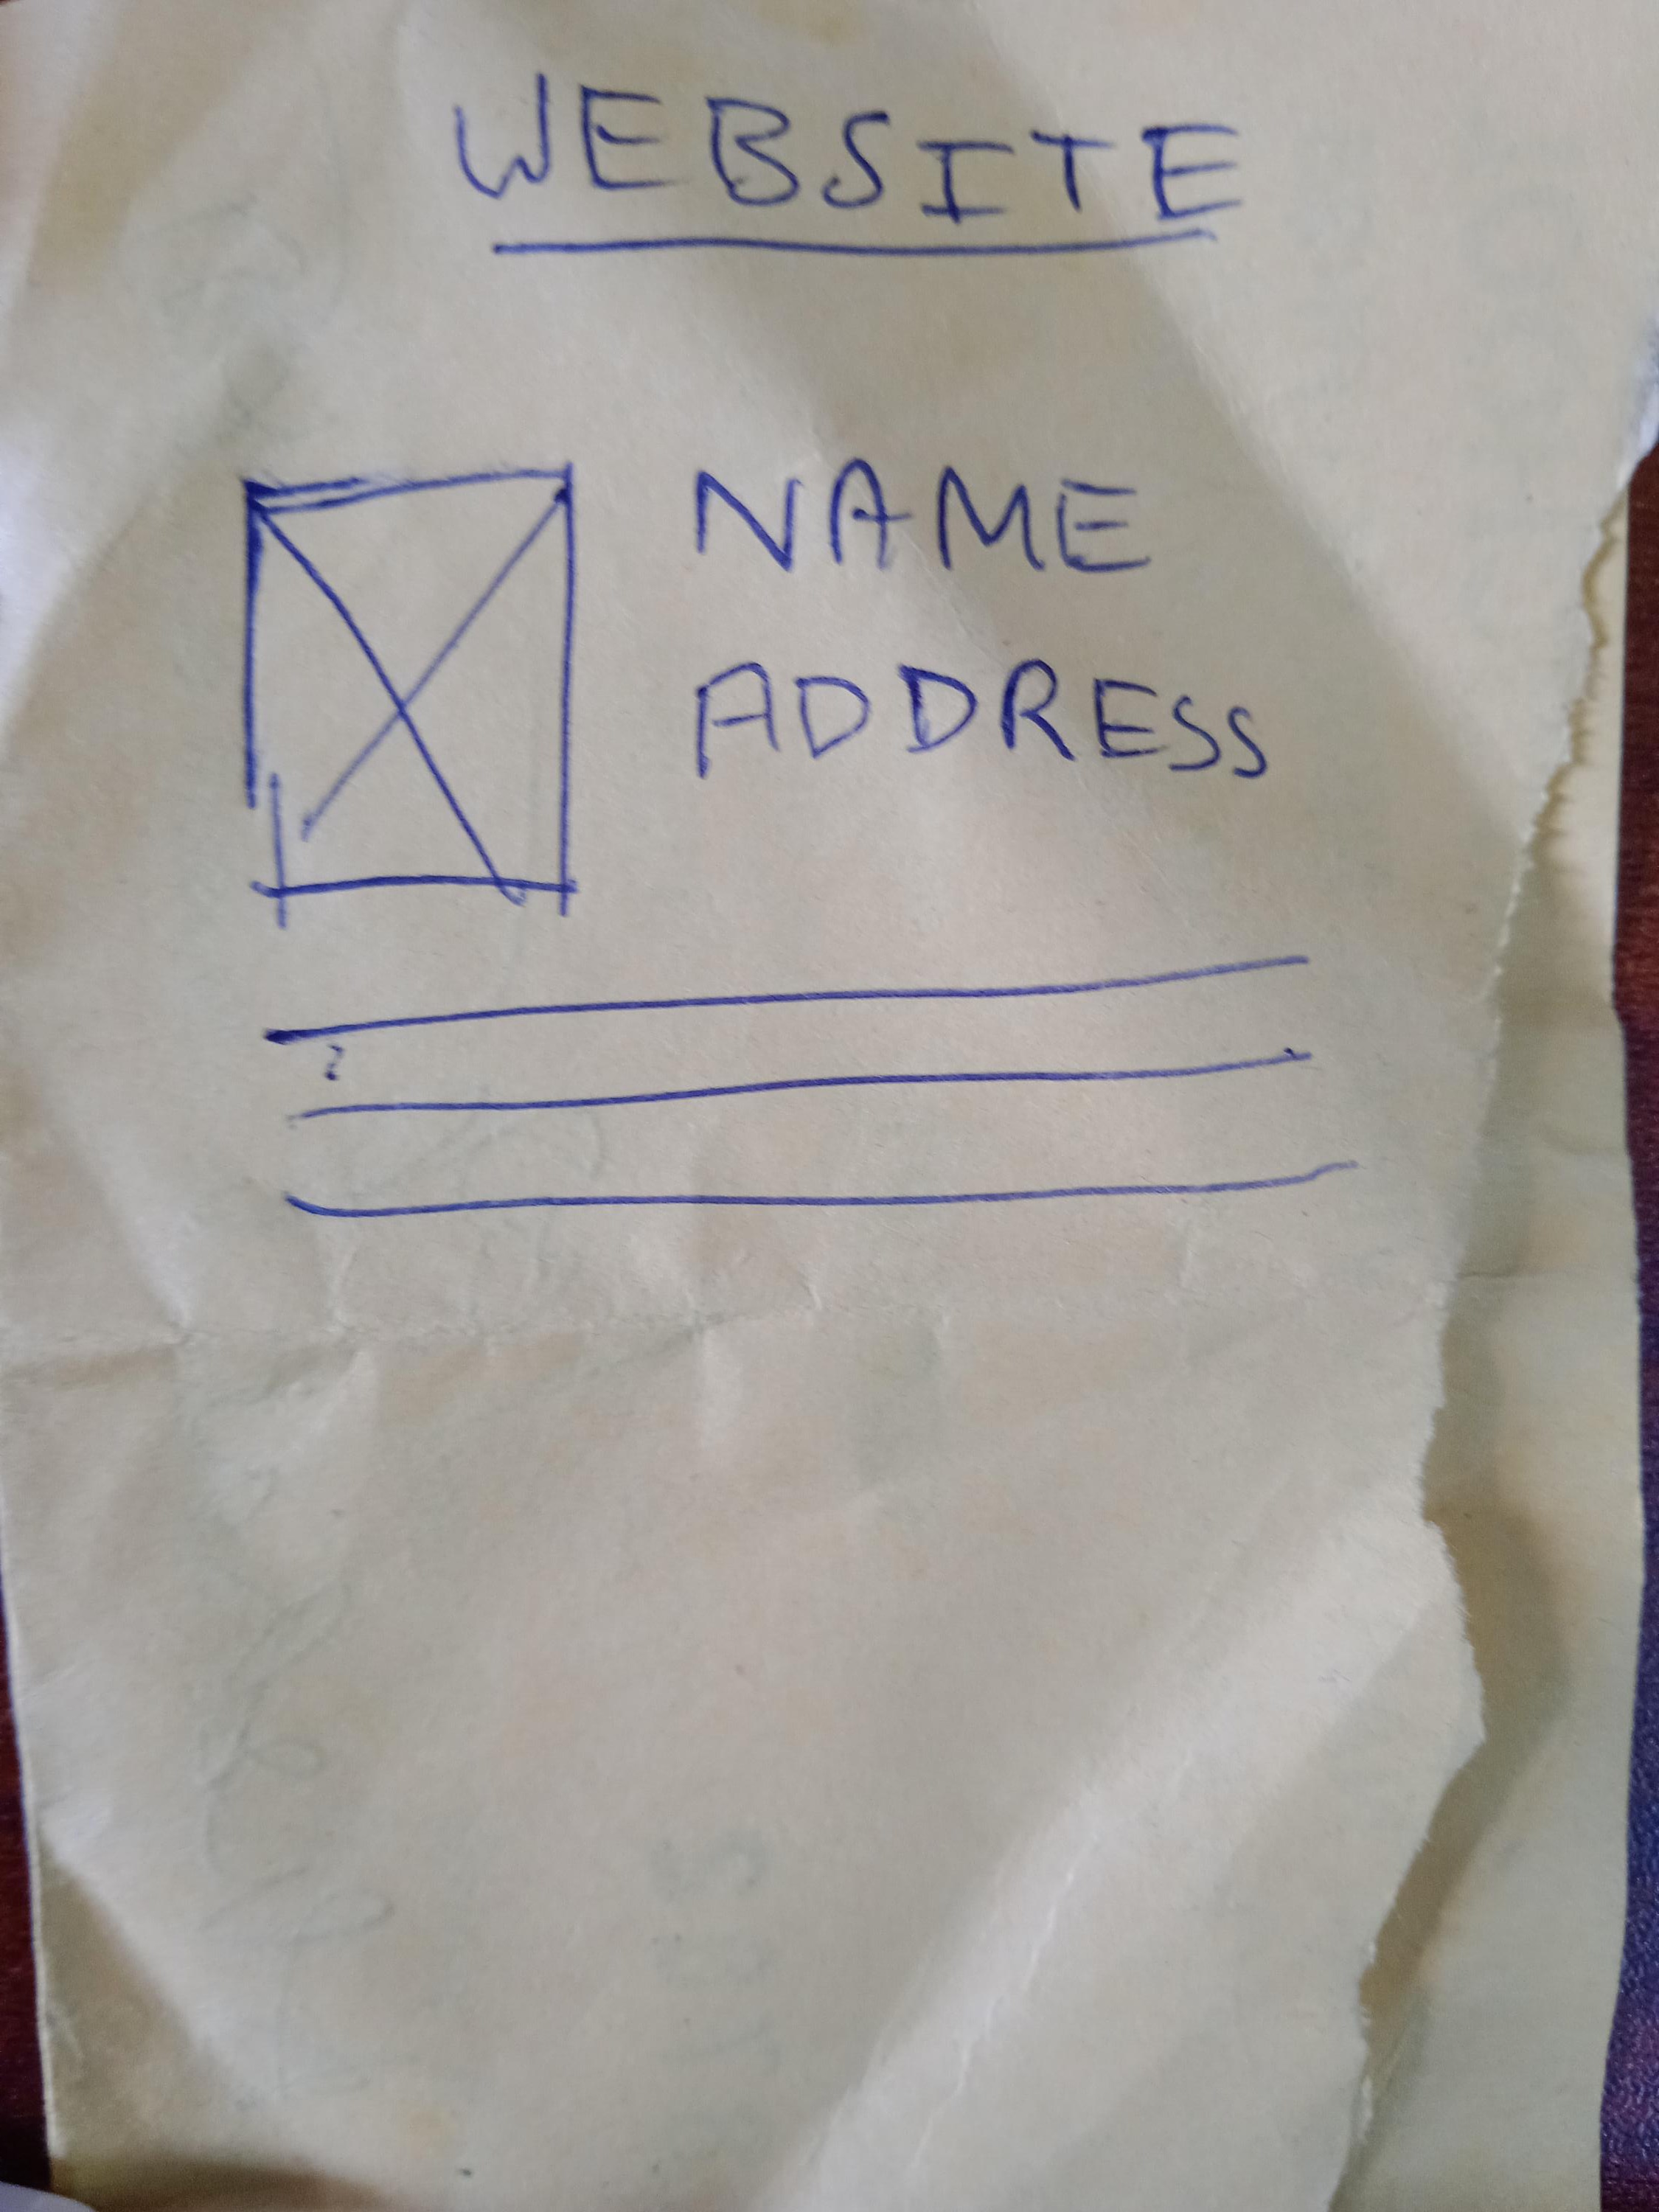 WEBSITE
NAME
ADDRESS